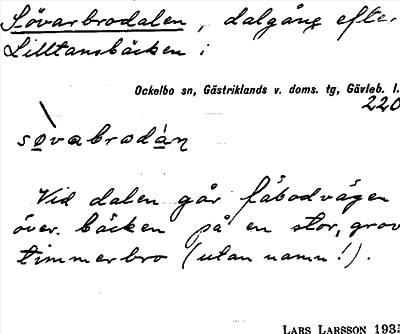 Sövarbrodalen, dalgång efter
Lilltansbäcken i
Ockelbo sn, Gästriklands v. doms. tg, Gävleb. l.
220
sòvabrodán
Vid dalen går fäbodvägen
över bäcken på en stor, grov
timmerbro (utan namn!).
LARS LARSSON 1935